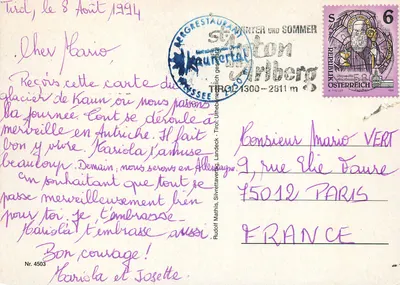 Tirol, le 8 Août 1994
Cher Mario
Reçois cette carte du
glacier de Kaun où nous passons
la journée. Tout se déroule à
merveille en Autriche. Il fait
bon y vivre. Mariola s'amuse
beaucoup. Demain, nous serons en Allemagne.
En souhaitant que tout se
passe merveilleusement bien
pour toi. Je t'embrasse.
Mariola t'embrasse aussi.
Bon courage!
Mariola et Josette.
Nr. 4503
BERGRESTAURANT
Kaunertal
WINTER UND SOMMER
st. anton
am arlberg
TIROL 1300-2811 m
S 6
REPUBLIK
ÖSTERREICH
Rudolf Mathis, Silvrettaverlag, Landeck - Tirol
Monsieur Mario VERT
9, rue Elie Faure
75012 PARIS
FRANCE